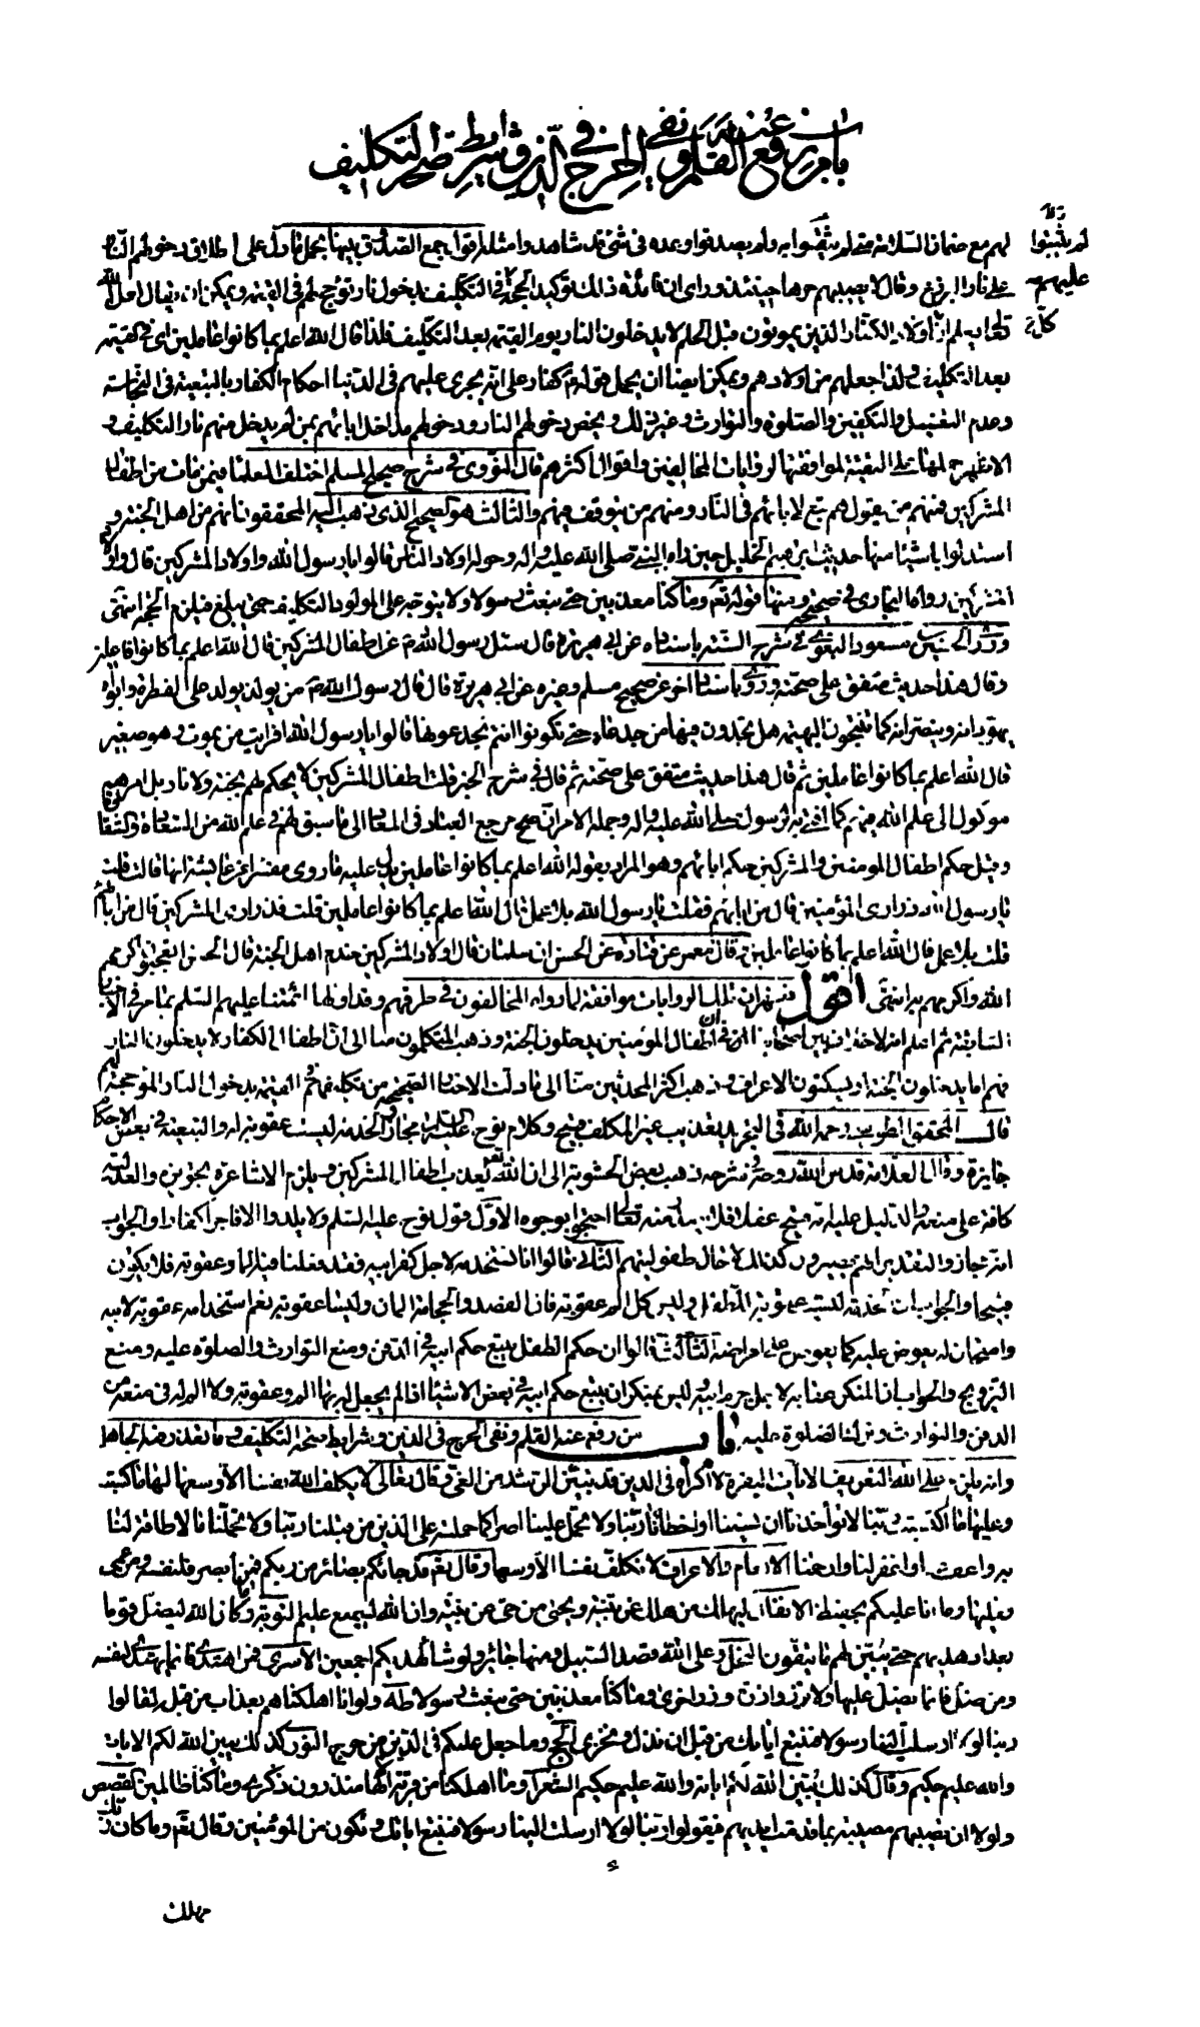 باب من رفع عنه القلم ونفي الحرج في الدين وشرايط صحة التكليف
لهم مع ضمان السلامة متى لم يثقوا به ولم يصدقوا وعده في شئ قد شاهدوا مثله
علي نار البرزخ وقال لا يصيبهم حرها حينئذ ورأى ان فائدة ذلك توكيد الحجة في التكليف بدخول نار تؤجج لهم في القيمة ويمكن ان يقال لعل الله
تعالى يعلم ان اولاد الكفار الذين يموتون قبل الحلم لا يدخلون النار يوم القيمة بعد التكليف فلذا قال الله اعلم بما كانوا عاملين اي في القيمة
بعد التكليف ولذا جعلهم من اولادهم ويمكن ايضا ان يحمل قوله كفار على انه يجري عليهم في الدنيا احكام الكفار بالتبعية في النجاسة
وعدم التغسيل والتكفين والصلوة والتوارث وغير ذلك ويخص دخولهم النار ودخولهم مداخل ابائهم بمن لم يدخل منهم نار التكليف و
الاظهر حملها على التقية لموافقتها لروايات المخالفين واقوال اكثرهم قال النووي في شرح صحيح المسلم اختلف العلماء فيمن مات من اطفال
المشركين فمنهم من يقول هم تبع لابائهم في النار ومنهم من يتوقف فيهم والثالث هو الصحيح الذي ذهب اليه المحققون انهم من اهل الجنة و
استدلوا باشياء منها حديث ابرهيم الخليل حين راه النبي صلى الله عليه واله وحوله اولاد الناس قالوا يا رسول الله واولاد المشركين قال واولاد
المشركين رواه البخاري في صحيحه ومنها قوله تع وما كنا معذبين حتى نبعث رسولا ولا يتوجه على المولود التكليف حتى يبلغ فيلزم الحجة انتهى
وروى الحسين بن مسعود البغوي في شرح السنة باسناده عن ابي هريرة قال سئل رسول الله ص عن اطفال المشركين قال الله اعلم بما كانوا عاملين
وقال هذا حديث متفق على صحته وروى باسناد اخر عن صحيح مسلم وغيره عن ابي هريرة قال قال رسول الله ص من يولد يولد على الفطرة وابواه
يهودانه وينصرانه كما تنتجون البهيمة هل تجدون فيها من جدعاء حتى تكونوا انتم تجدعونها قالوا يا رسول الله افرايت من يموت وهو صغير
قال الله اعلم بما كانوا عاملين ثم قال هذا حديث متفق على صحته ثم قال في شرح الخبر قلت اطفال المشركين لا يحكم لهم بجنة ولا نار بل امرهم
موكول الى علم الله فيهم كما افتى به الرسول صلى الله عليه واله وجملة الامر ان مرجع العباد في المعاد الى ما سبق لهم في علم الله من السعادة والشقاوة
وقيل حكم اطفال المومنين والمشركين حكم ابائهم وهو المراد بقوله الله اعلم بما كانوا عاملين يدل عليه ما روي مفسرا عن عايشة انها قالت قلت
يا رسول الله ذراري المؤمنين قال من ابائهم فقلت يا رسول الله بلا عمل قال الله اعلم بما كانوا عاملين قلت فذراري المشركين قال من ابائهم
قلت بلا عمل قال الله اعلم بما كانوا عاملين وقال معمر عن قتادة عن الحسن ان سلمان قال اولاد المشركين خدم اهل الجنة قال الحسن اتعجبون اكرمهم
الله واكرمهم به انتهى اقول فظهر ان تلك الروايات موافقة لما رواه المخالفون في طرقهم وقد اولها ائمتنا عليهم السلم بما مر في الاخبار
السابقة ثم اعلم انه لا خلاف بين اصحابنا في ان اطفال المؤمنين يدخلون الجنة وذهب المتكلمون منا الى ان اطفال الكفار لا يدخلون النار
فهم اما يدخلون الجنة او يسكنون الاعراف وذهب اكثر المحدثين منا الى ما دلت الاخبار الصحيحة من تكليفهم في القيمة بدخول النار المؤججة لهم
قال المحقق الطوسي رحمه الله في التجريد وتعذيب غير المكلف قبيح وكلام نوح عليه السلم مجاز والخدمة ليست عقوبة له والتبعية في بعض الاحكام
جايزة وقال العلامة قدس الله روحه في شرحه ذهب بعض الحشوية الى ان الله تعالى يعذب اطفال المشركين ويلزم الاشاعرة تجويزه والعدلية
كافة على منعه والدليل عليه انه قبيح عقلا فلا يصدر منه تعالى احتجوا بوجوه الاول قول نوح عليه السلم ولا يلدوا الا فاجرا كفارا والجواب
انه مجاز والتقدير انهم يصيرون كذلك لا حال طفوليتهم الثاني قالوا انا نستخدمه لاجل كفر ابيه فقد فعلنا فيه الما وعقوبة فلا يكون
قبيحا والجواب ان الخدمة ليست عقوبة للطفل وليس كل الم عقوبة فان الفصد والحجامة المان وليسا عقوبة نعم استخدامه عقوبة لابيه
وامتحان له يعوض عليه كما يعوض على امراضه الثالث قالوا ان حكم الطفل يتبع حكم ابيه في الدفن ومنع التوارث والصلوة عليه ومنع
التزويج والجواب ان المنكر عقابه لاجل جرم ابيه وليس بمنكر ان يتبع حكم ابيه في بعض الاشياء اذا لم يجعل له بها الم وعقوبة ولا الم له في منعه من
الدفن والتوارث وترك الصلوة عليه باب من رفع عنه القلم ونفى الحرج في الدين وشرايط صحة التكليف وما يعذر فيه الجاهل
وانه يلزم على الله التعريف الايات البقرة لا اكراه في الدين قد تبين الرشد من الغي وقال تعالى لا يكلف الله نفسا الا وسعها لها ما كسبت
وعليها ما اكتسبت ربنا لا تؤاخذنا ان نسينا او اخطأنا ربنا ولا تحمل علينا اصرا كما حملته على الذين من قبلنا ربنا ولا تحملنا ما لا طاقة لنا
به واعف عنا واغفر لنا وارحمنا الانعام والاعراف لا نكلف نفسا الا وسعها وقال تع قد جائكم بصائر من ربكم فمن ابصر فلنفسه ومن عمى
فعليها وما انا عليكم بحفيظ الانفال ليهلك من هلك عن بينة ويحيى من حي عن بينة وان الله لسميع عليم التوبة وما كان الله ليضل قوما
بعد اذ هديهم حتى يبين لهم ما يتقون النحل وعلى الله قصد السبيل ومنها جائر ولو شاء لهديكم اجمعين الاسرى فمن اهتدى فانما يهتدي لنفسه
ومن ضل فانما يضل عليها ولا تزر وازرة وزر اخرى وما كنا معذبين حتى نبعث رسولا طه ولو انا اهلكناهم بعذاب من قبله لقالوا
ربنا لولا ارسلت الينا رسولا فنتبع اياتك من قبل ان نذل ونخزى الحج وما جعل عليكم في الدين من حرج النور كذلك يبين الله لكم الايات
والله عليم حكيم وقال كذلك يبين الله لكم اياته والله عليم حكيم الشعرا وما اهلكنا من قرية الا لها منذرون ذكرى وما كنا ظالمين القصص
ولولا ان تصيبهم مصيبة بما قدمت ايديهم فيقولوا ربنا لولا ارسلت الينا رسولا فنتبع اياتك ونكون من المؤمنين وقال تع وما كان ربك
مهلك